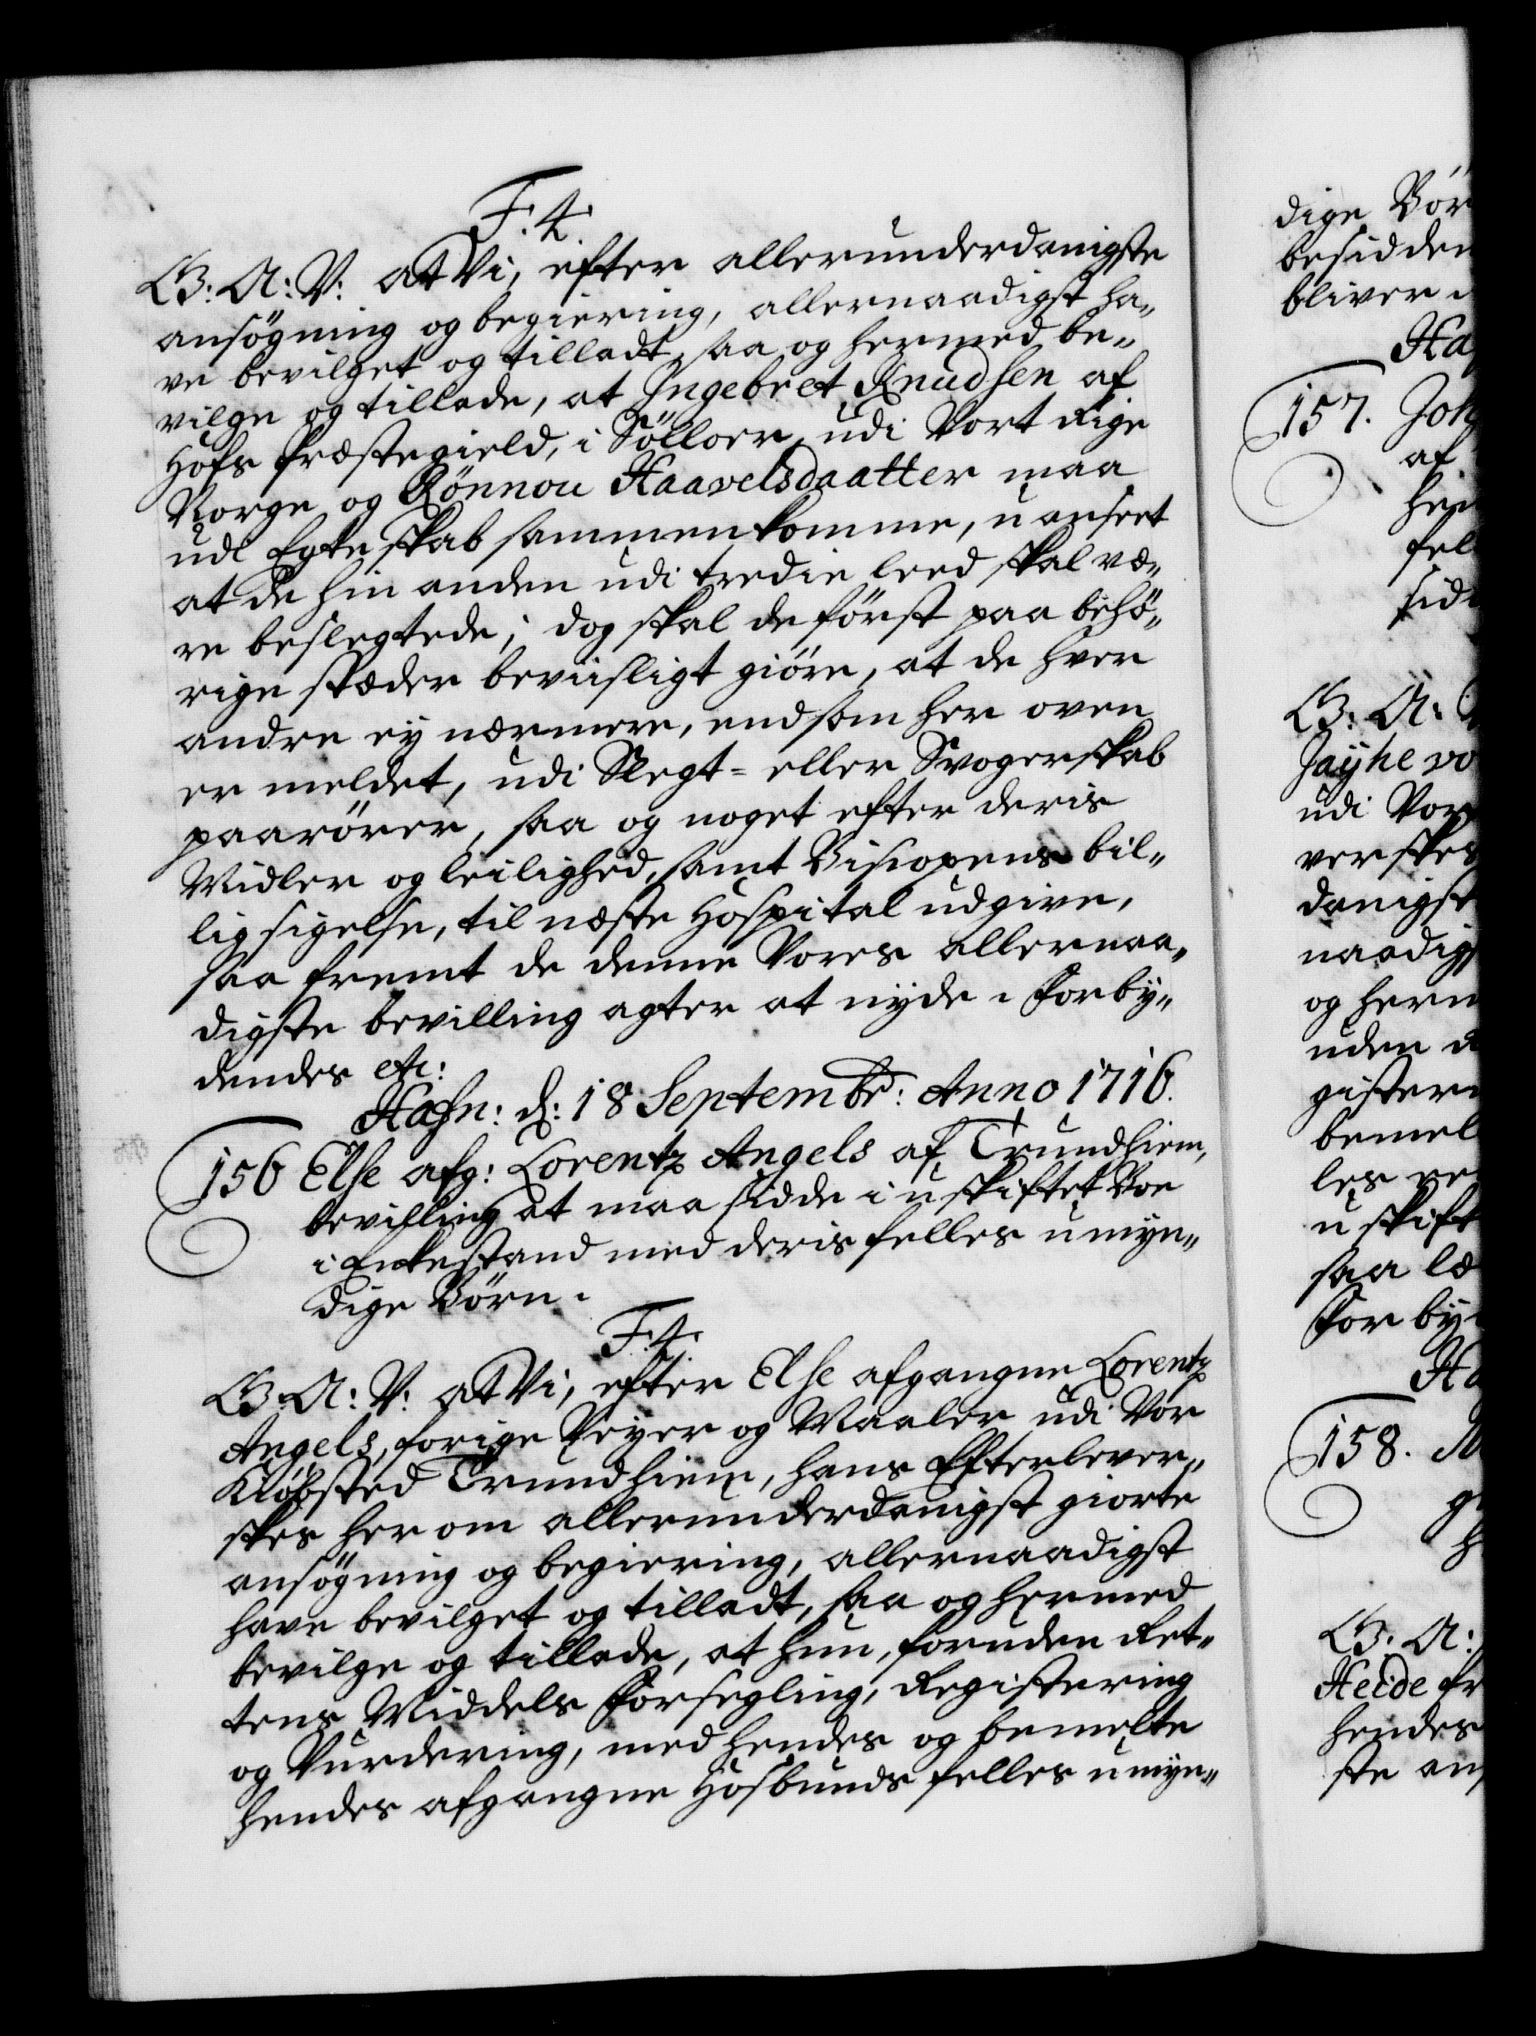 F. 4.
G: A: V: at Vi, efter allerunderdanigste
ansøgning og begiering, allernaadigst ha„
ve bevilget og tilladt, saa og hermed be„
vilge og tillade, at Ingebret Knudsen af
Hofs Præstegield, i Sölloer, udi Vort Rige
Norge og Rönnou Haavelsdaatter maa
udi Egteskab sammenkomme, uanseet
at de hin anden udi tredie leed skal væ„
re beslegtede; dog skal de först paa behö„
rige stæder beviisligt giöre, at de hver
andre ey nærmere, end som her oven
er meldet, udi Slegt= eller Svogerskab
paarörer, saa og noget efter deris
Midler og leilighed, samt Biscopens bil„
lig sigelse, til næste Hospital udgive,
saa fremt de denne Vores allernaa„
digste bevilling agter at nyde. Forby„
dendes etc:
Hafn: d: 18 Septembr: Anno 1716.
156 Else afg: Lorentz Angels af Trundhiem,
bevilling at maa sidde i uskiftet Boe
i Enkestand med deris felles umyn„
dige Börn.
F. 4.
G. A: V: at Vi, efter Else afgangne Lorentz
Angels, forige Veyer og Maaler udi Vor
Kiöbsted Trundhiem, hans Efterlever„
skes her om allerunderdanigst giorte
ansögning og begiering, allernaadigst
have bevilget og tilladt, saa og hermed
bevilge og tillade, at hun, foruden Ret„
tens Middels Forsegling, Registering
og Vurdering, med hendes og bemelte
hendes afgangne Hosbunds felles umyn„
dige Bör
besidden
bliver
Ha
157. Joh
af
hei
fel
sid
G: A:
Jayhe vo
udi Vor
verskes
danigst
naadigs
og herm
uden
gisteri
bemel
les
uskift
saa læ
Forby
Ha
158.
G: A:
Heide fr
hendes
ste an